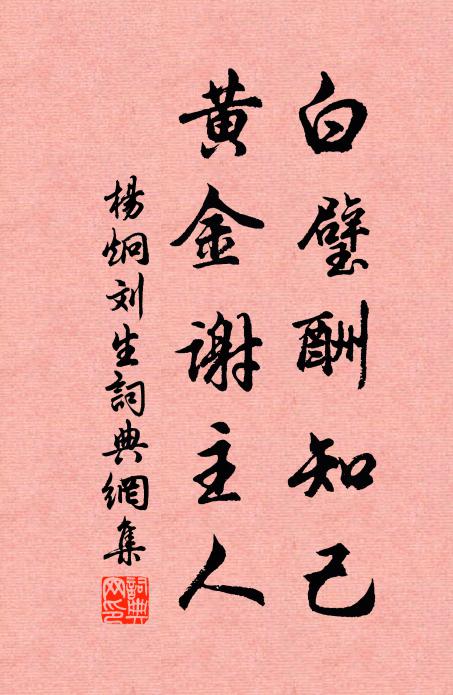 白璧酬知己
黄金謝主人
楊炯刘生詞典網集
詞典网印